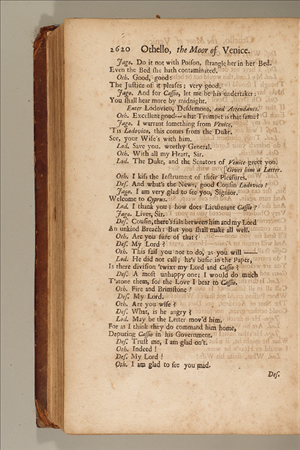 2620 Othello, the Moor of Venice.
Jago. Do it not with Poison, strangle her in her Bed.
Even the Bed she hath contaminated.
Oth. Good, good:
The Justice of it pleases; very good.
Jago. And for Cassio, let me be his undertaker:
You shall hear more by midnight.
Enter Lodovico, Desdemona, and Attendants.
Oth. Excellent good—what Trumpet is that same?
Jago. I warrant something from Venice,
'Tis Lodovico, this comes from the Duke.
See, your Wife's with him.
Lod. Save you, worthy General.
Oth. With all my Heart, Sir.
Lod. The Duke, and the Senators of Venice greet you.
Gives him a Letter.
Oth. I kiss the Instrument of their Pleasures.
Des. And what's the News, good Cousin Lodovico?
Jago. I am very glad to see you, Signior.
Welcome to Cyprus.
Lod. I thank you; how does Lieutenant Cassio?
Jago. Lives, Sir.
Des. Cousin, there's faln between him and my Lord
An unkind Breach: But you shall make all well.
Oth. Are you sure of that?
Des. My Lord?
Oth. This fail you not to do, as you will——
Lod. He did not call; he's busie in the Paper,
Is there division 'twixt my Lord and Cassio?
Des. A most unhappy one; I would do much
T'atone them, for the Love I bear to Cassio.
Oth. Fire and Brimstone!
Des. My Lord.
Oth. Are you wise?
Des. What, is he angry?
Lod. May be the Letter mov'd him.
For as I think they do command him home,
Deputing Cassio in his Government.
Des. Trust me, I am glad on't.
Oth. Indeed!
Des. My Lord?
Oth. I am glad to see you mad.
Des.